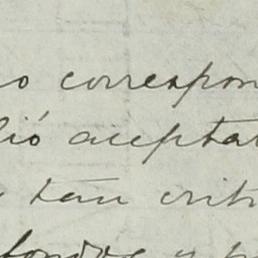 o correspon
lió aceptar
tan criti
fondos y p